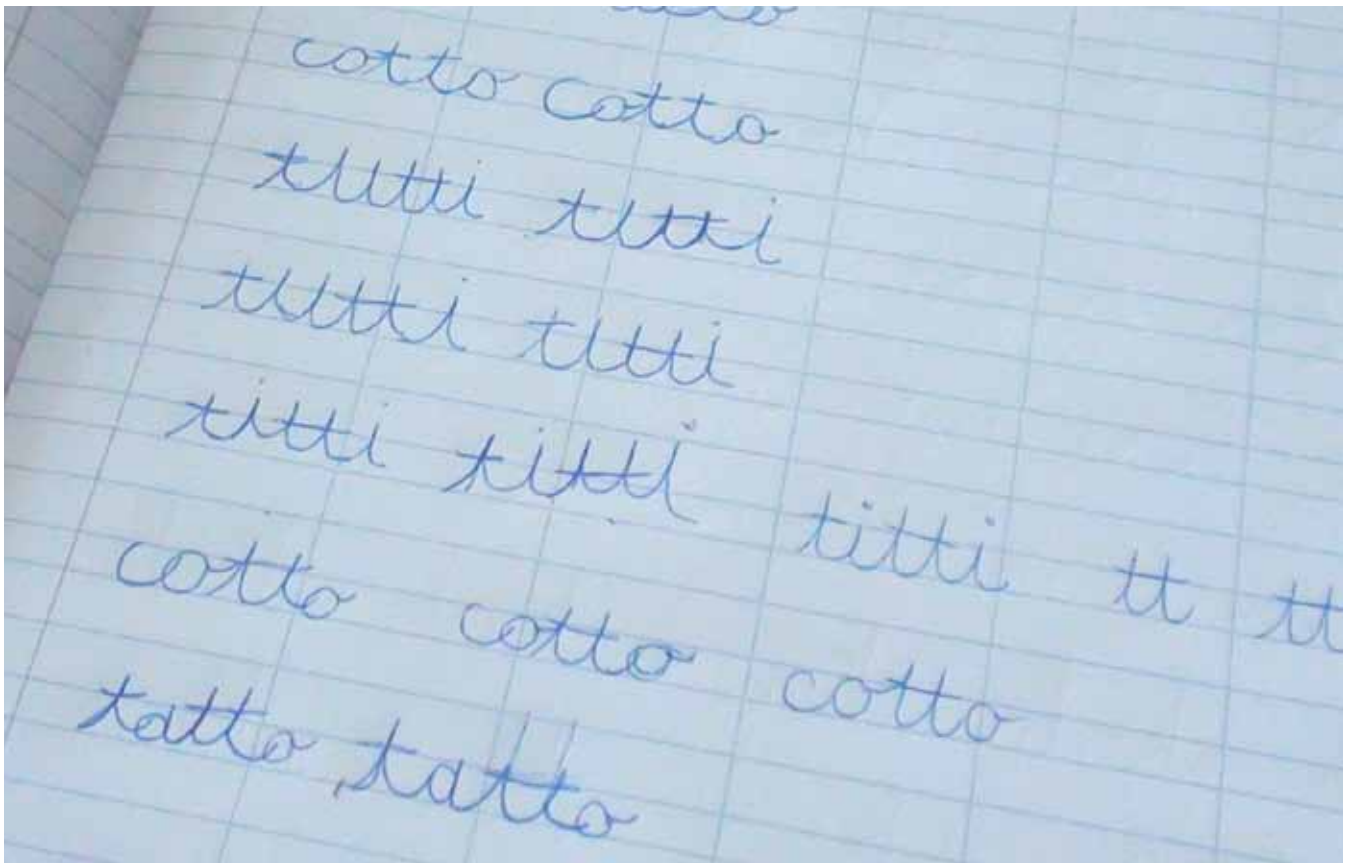 cotto cotto
tutti tutti
tutti tutti
titti titti titti tt tt
cotto cotto cotto
tatto tatto